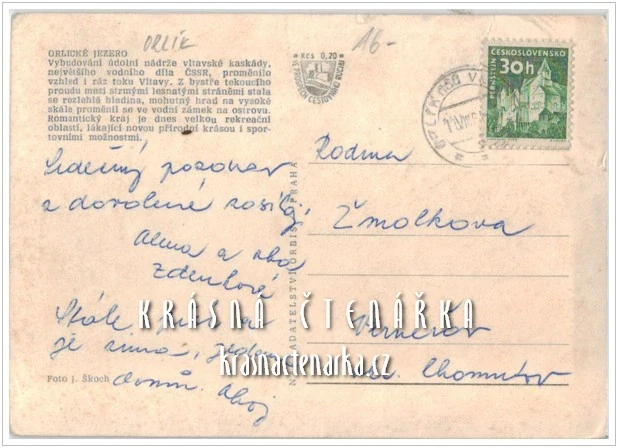 ORLICKÉ JEZERO
Vybudování údolní nádrže vltavské kaskády,
největšího vodního díla ČSSR, proměnilo
vzhled i ráz toku Vltavy. Z bystře tekoucího
proudu mezi strmými lesnatými stráněmi stala
se rozlehlá hladina, mohutný hrad na vysoké
skále proměnil se ve vodní zámek na ostrovu.
Romantický kraj je dnes velkou rekreační
oblastí, lákající novou přírodní krásou i spor-
tovními možnostmi.
ORLÍK
16-
Kčs 0,20
ČESKOSLOVENSKO
30h
PERNŠTEJN
Srdečný pozdrav
z dovolené
Alena a oba
Zdeňkové
Stále
je zima,
Ahoj
Foto J. Škoch
NAKLADATELSTVÍ ORBIS PRAHA
Rodina
Žmolkova
Chomutov
KRÁSNÁ ČTENÁŘKA
krasnactenarka.cz